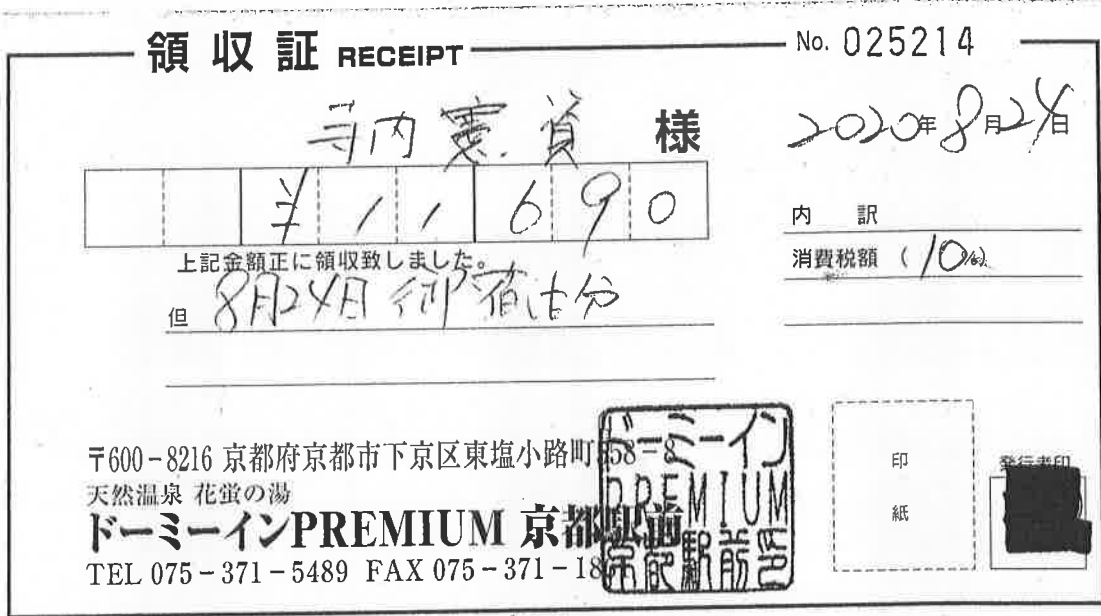 領収証 RECEIPT
No. 025214
寺内憲資 様
2020年8月24日
¥11690
上記金額正に領収致しました。
但 8月24日 御宿泊分
内 訳
消費税額 (10%)
印紙
発行者印
〒600-8216 京都府京都市下京区東塩小路町558-8
天然温泉 花蛍の湯
ドーミーインPREMIUM 京都駅前
TEL 075-371-5489 FAX 075-371-18
ドーミーイン
PREMIUM
京都駅前印